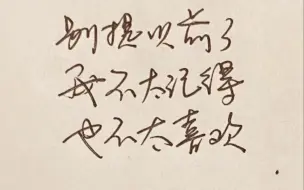 别提以前了
我不太记得
也不太喜欢